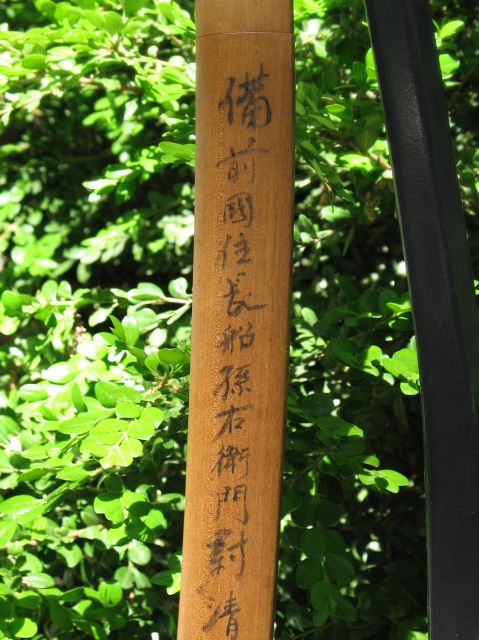 備前國住長船孫右衛門尉清